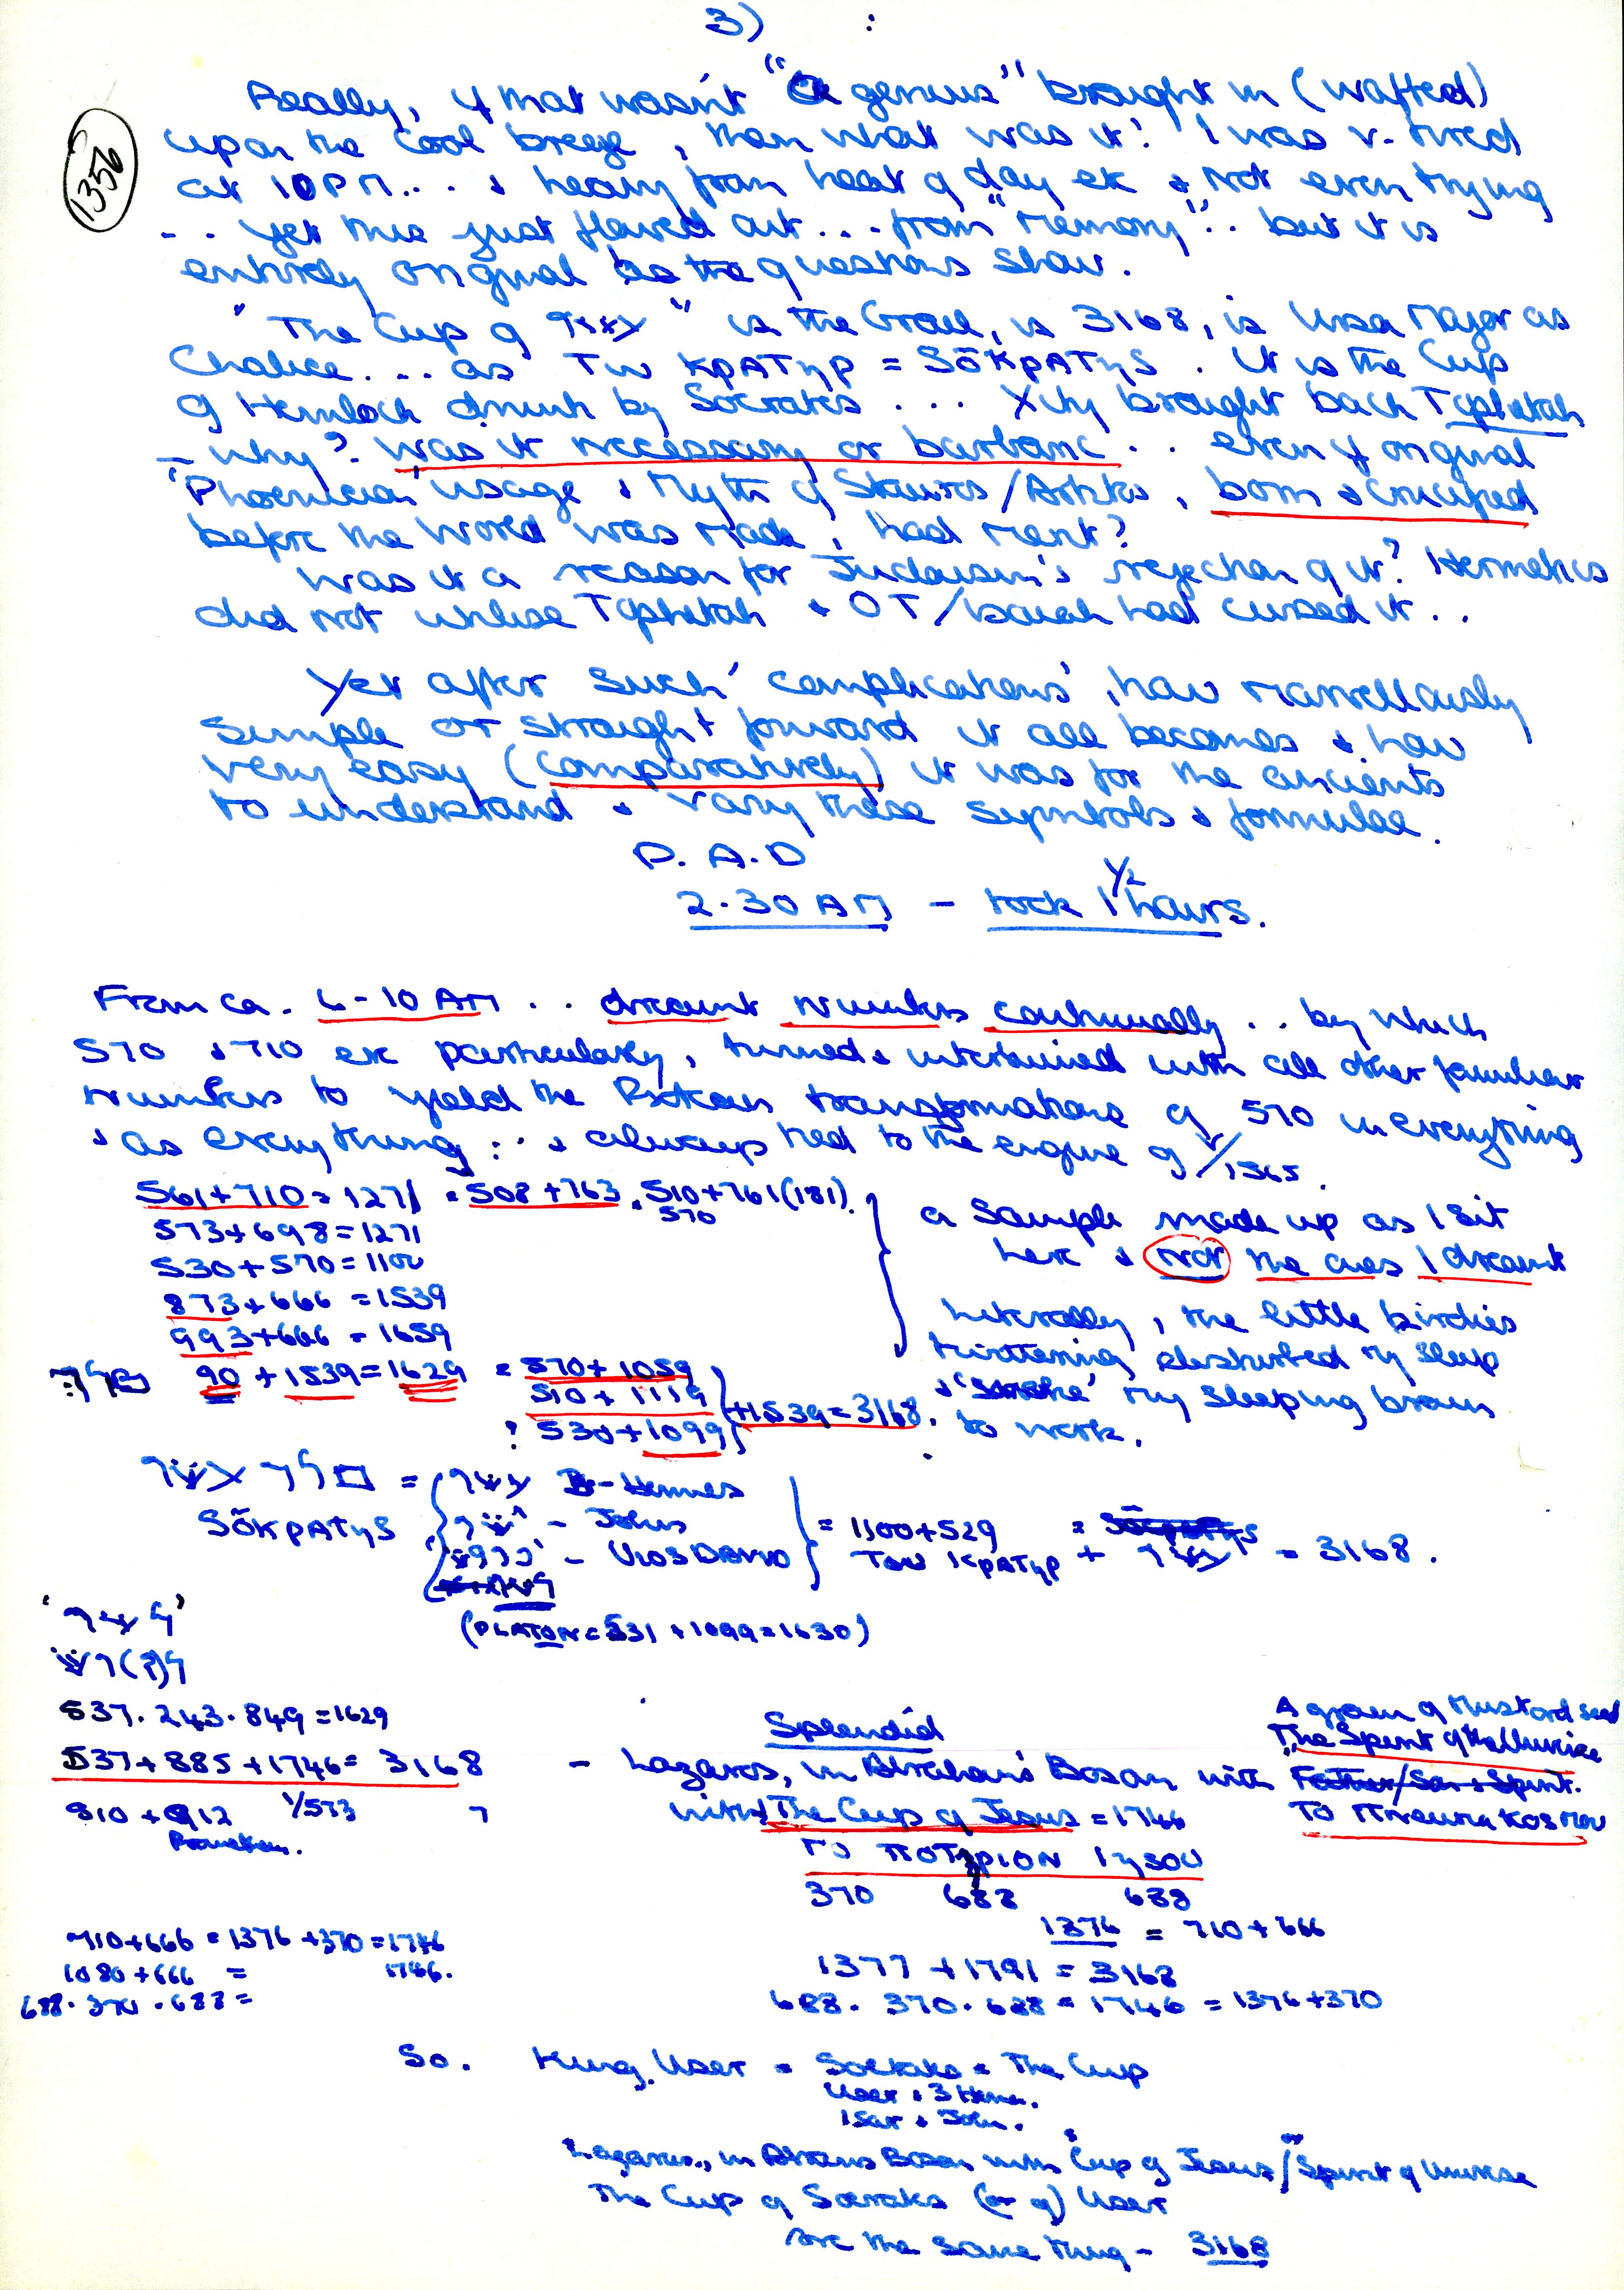 3) :
1356
Really, if that wasn't "a genius" brought in (wafted)
upon the cool breeze, then what was it? I was v. tired
at 10PM... & heavy from heat of day etc & not even trying
.. yet this just flared out... from "memory".. but it is
entirely original as the questions show.
"The Cup of" is the Grail, is 3168, is Ursa Major as
Chalice... as Tω KPATηP = SōKPATηS. It is the Cup
of Hemlock drunk by Socrates... Xity brought back Tophetah
- why? was it necessary or barbaric.. even if original
'Phoenician' usage & Myth of Stauros/, born & crucified
before the World was made, had merit?
Was it a reason for Judaism's rejection of it? Hermetics
did not utilise Tophetah & OT/Isaiah had cursed it..
Yet after such 'complications', how marvellously
simple or straight forward it all becomes & how
very easy (comparatively) it was for the ancients
to understand & vary these symbols & formulae.
P.A.D
2.30 AM - took 1½ hours.
From ca. 6-10 AM .. dreamt numbers continually .. by which
570 & 710 etc particularly, turned & intertwined with all other familiar
numbers to yield the transformations of 570 in everything
& as everything: .. & always tied to the engine of √/1565.
561+710=1271 = 508+763, 510+761(181).
570
573+698=1271
530+570=1100
873+666=1539
993+666=1659
a sample made up as I sit
here & not the ones I dreamt
Literally, the little birdies
twittering disturbed my sleep
& my sleeping brain
to work.
90+1539=1629 = 570+1059
510+1119
? 530+1099
+1539=3168.
= B-Hermes
SōKPATηS - John
- UIOS DAVID
= 1100+529
Tω KPATηP + = 3168.
(PLATON=531+1099=1630)
537.243.849=1629
537+885+1746=3168
810+912 1/573
Splendid
- Lazaros, in Abraham's Bosom with
with "The Cup of Jesus = 1746
TO ΠOTηPION IηSOU
370 688 688
1376 = 710+666
A grain of Mustard seed
"The Spirit of the Universe
Father/Son & Spirit.
TO Πneuma KosMou
710+666=1376+370=1746
1080+666 = 1746.
688.370.688=
1377+1791=3168
688.370.688=1746=1376+370
So. King User = Socrates = The Cup
User & 3 Herm.
Isar & John.
"Lazarus, in Abrams Bosom with Cup of Jesus/Spirit of Universe
The Cup of Socrates (or of) User
are the same thing - 3168